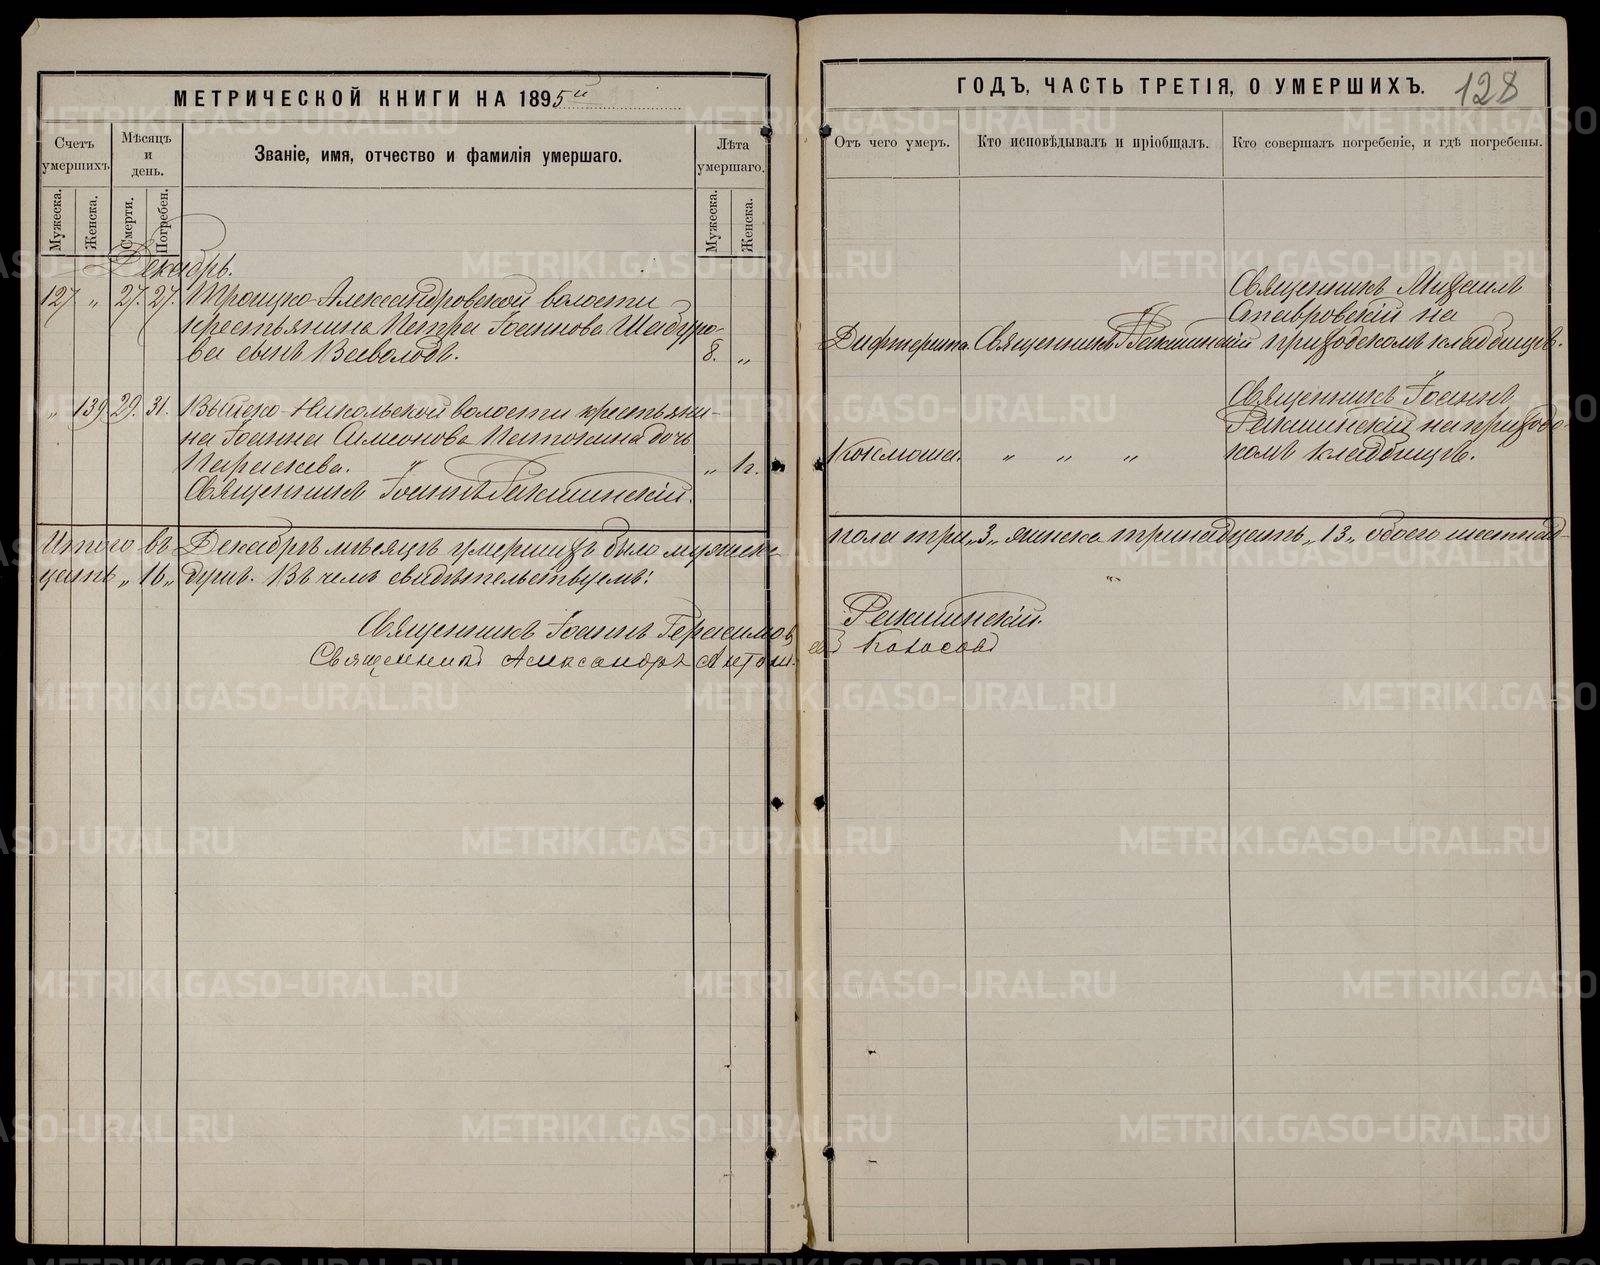 МЕТРИЧЕСКОЙ КНИГИ НА 1895й
Счетъ умершихъ.
Мѣсяцъ и день.
Званіе, имя, отчество и фамилія умершаго.
Лѣта умершаго.
Мужеска.
Женска.
Смерти.
Погребен.
Мужеска.
Женска.
Декабрь.
127 „ 27. 27. Троицко-Александровской волости
крестьянина Петра Іоаннова Шабуро-
ва сынъ Всеволодъ. 8. „
„ 139 29. 31. Выйско-Никольской волости крестьяни-
на Іоанна Симеонова Паточкина дочь
Параскева. „
Священникъ Іоаннъ Ракшинскій.
Итого въ Декабрѣ мѣсяцѣ умершихъ было мужеска
цать „16„ душъ. Въ чемъ свидѣтельствуемъ:
Священникъ Іоаннъ Герасимовъ
Священникъ Александръ Антоні-
ГОДЪ, ЧАСТЬ ТРЕТІЯ, О УМЕРШИХЪ.
128
Отъ чего умеръ.
Кто исповѣдывалъ и пріобщалъ.
Кто совершалъ погребеніе, и гдѣ погребены.
Священникъ Михаилъ
Ставровскій на
Дифтерита. Священникъ Ракшинскій приходскомъ кладбищѣ.
Священникъ Іоаннъ
Ракшинскій на приходс-
Коклюша. „ „ „ комъ кладбищѣ.
пола три „3„ женска тринадцать „13„ обоего шестнад-
„
Ракшинскій.
Колосовъ
METRIKI.GASO-URAL.RU